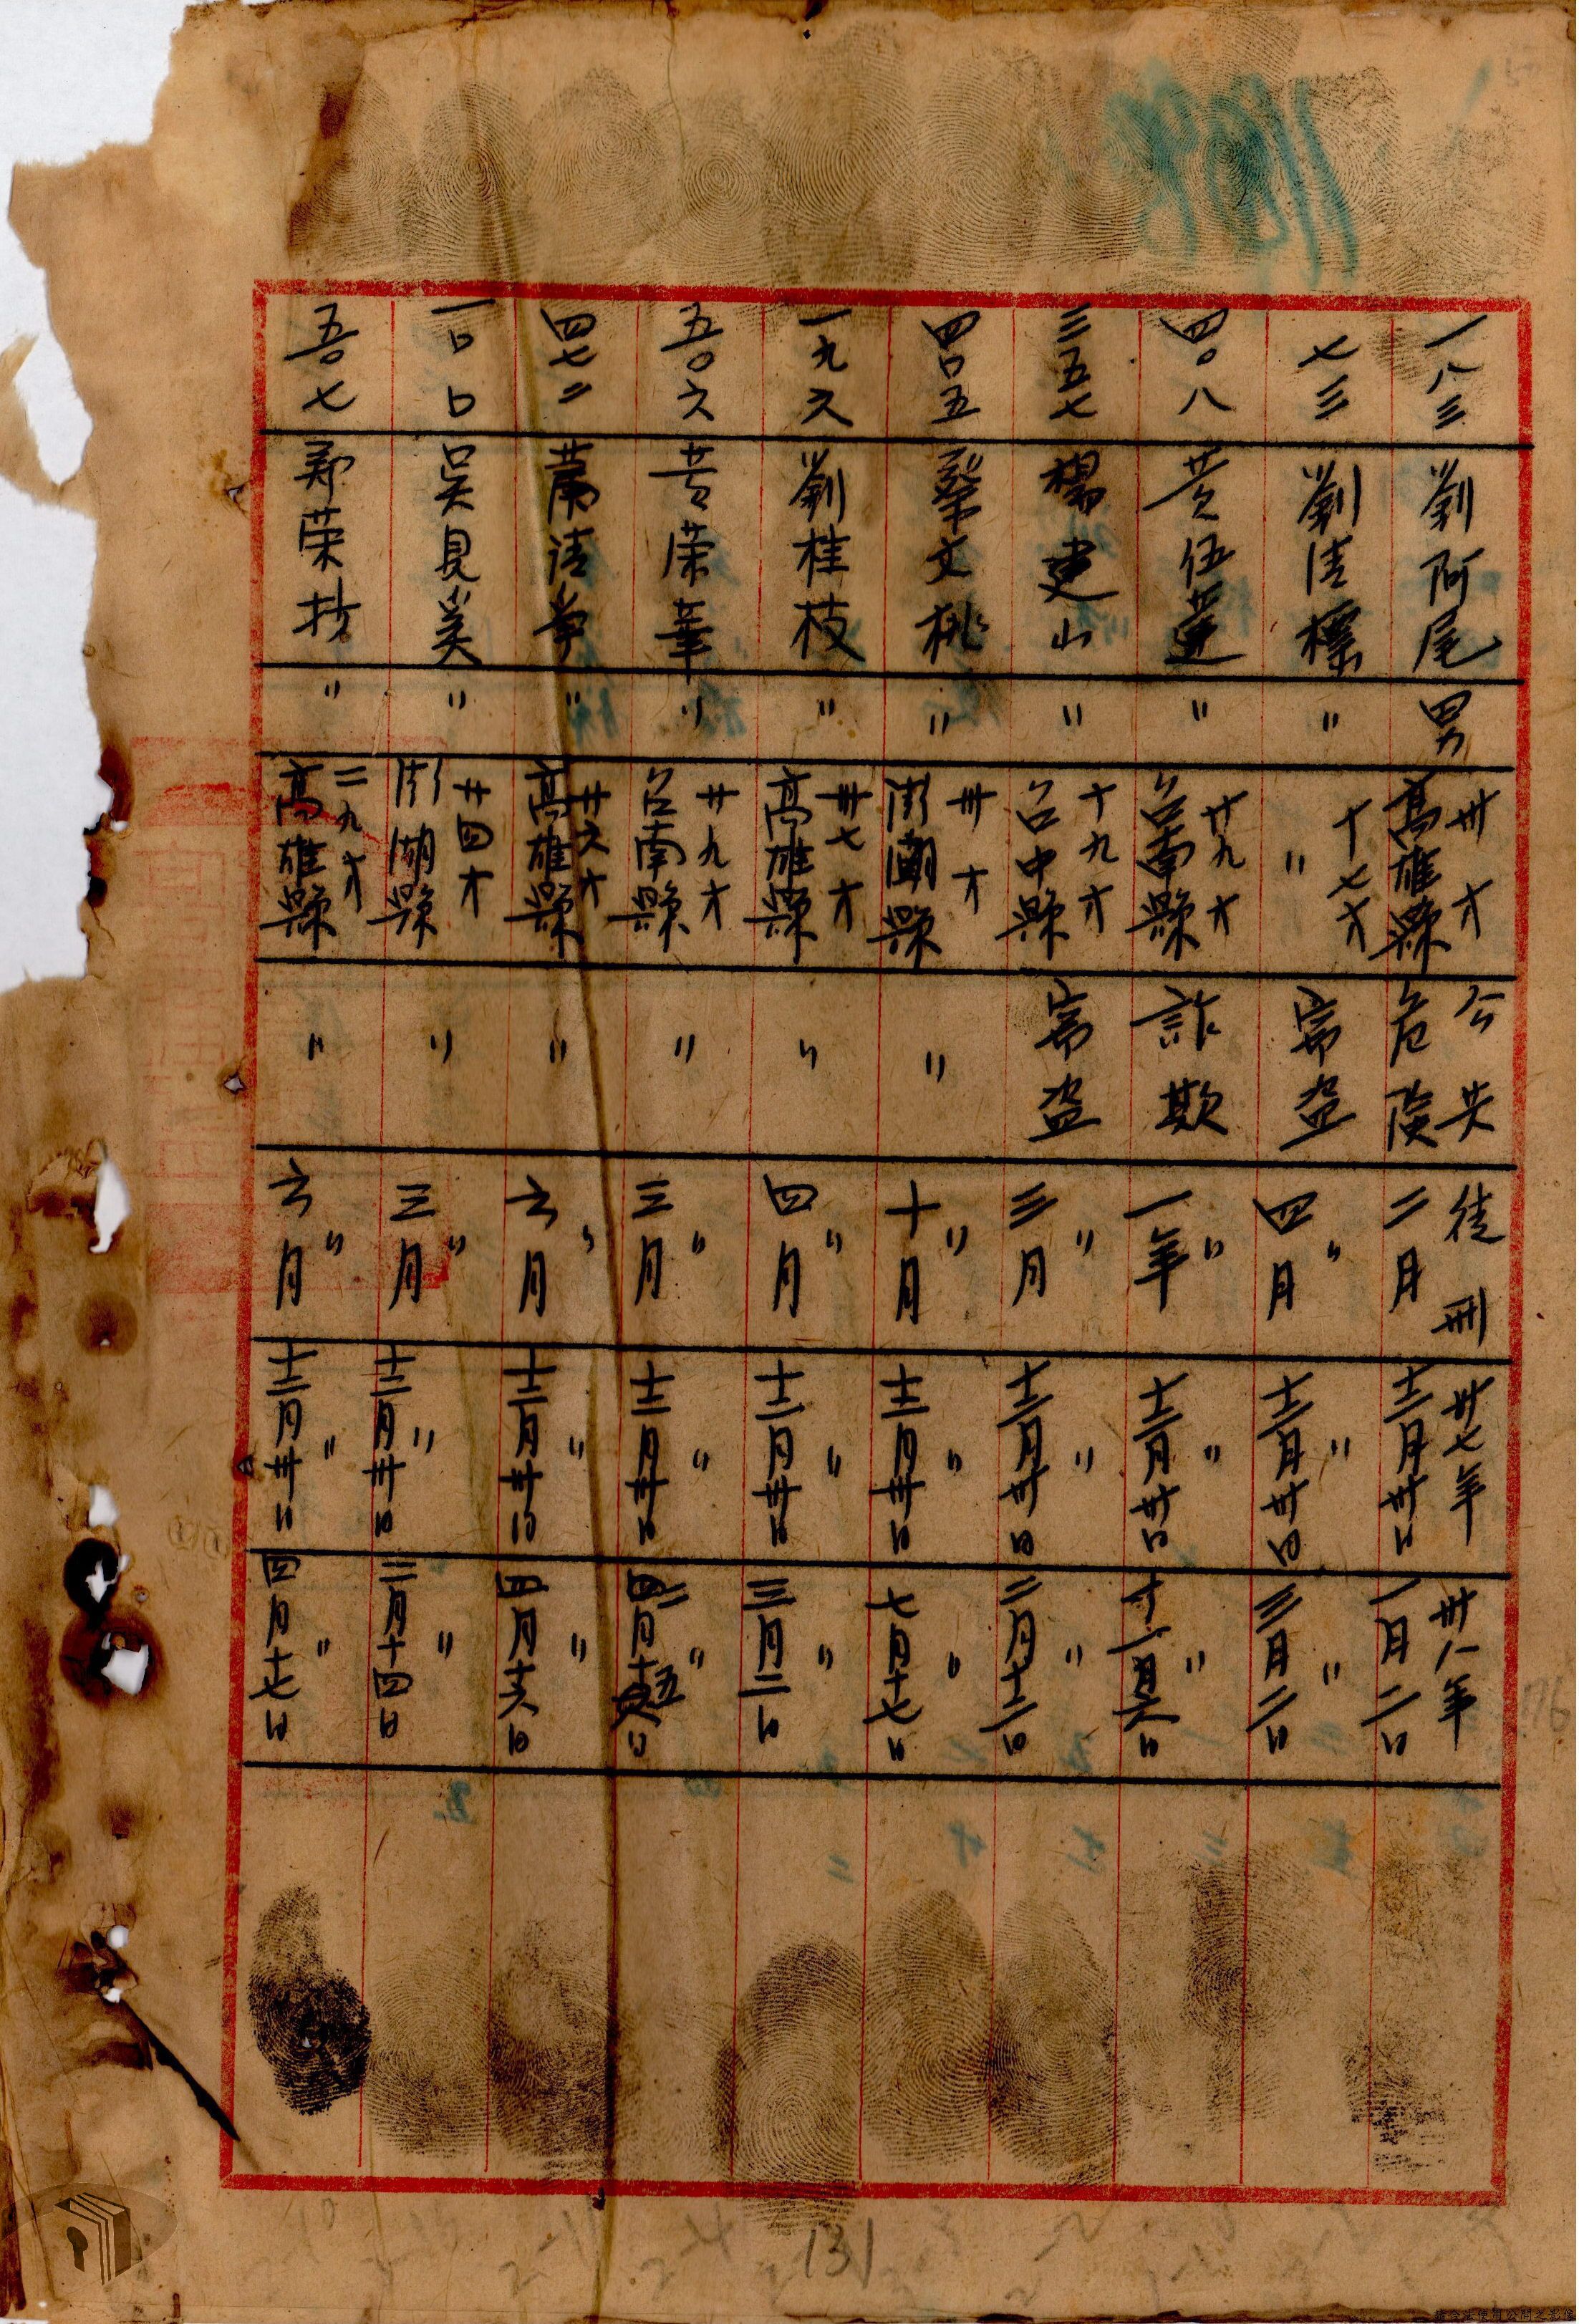 一八三 劉阿尾 男 卅才 高雄縣 公共危險 徒刑二月 卅七年十二月卅日 卅八年一月二日
七三 劉清標 〃 十七才 〃 寃盜 〃四月 〃十二月卅日 〃三月二日
四〇八 黃伍蓮 〃 廿九才 台南縣 詐欺 〃一年 〃十二月廿日 〃十一月六日
三五七 楊建山 〃 十九才 台中縣 寃盜 〃三月 〃十二月卅日 〃二月十二日
四口五 蔡文桃 〃 卅才 澎湖縣 〃 〃十月 〃十二月卅日 〃七月十七日
一九六 劉桂枝 〃 卅七才 高雄縣 〃 〃四月 〃十二月卅日 〃三月二日
五〇六 黃荣華 〃 廿九才 台南縣 〃 〃三月 〃十二月卅日 〃
四七二 〃 廿六才 高雄縣 〃 〃六月 〃十二月卅日 〃四月十六日
一口口 吳見 〃 廿四才 澎湖縣 〃 〃三月 〃十二月卅日 〃二月十四日
五〇七 鄭荣 〃 二九才 高雄縣 〃 〃六月 〃十二月卅日 〃四月十七日
131